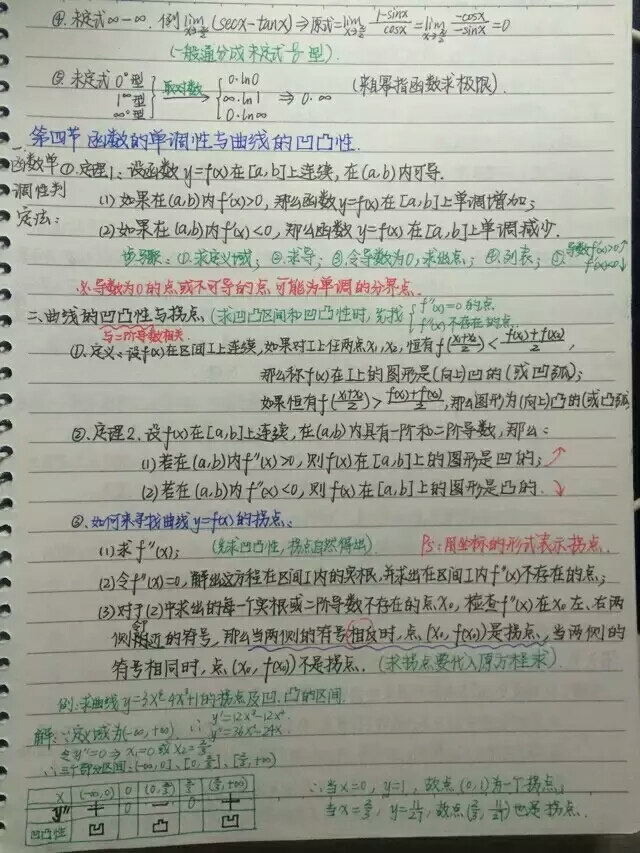 ④.未定式∞-∞. 例 lim x→π/2 (secx-tanx) ⇒ 原式=lim x→π/2 (1-sinx)/cosx = lim x→π/2 (-cosx)/(-sinx) = 0
(一般通分成未定式 0/0 型).
⑤.未定式 0⁰型 0·ln0
1^∞型 取对数→ ∞·ln1 ⇒ 0·∞ (来自幂指函数求极限).
∞⁰型 0·ln∞
第四节 函数的单调性与曲线的凹凸性.
一.函数单调性判定法:
①.定理1:设函数y=f(x)在[a,b]上连续,在(a,b)内可导.
(1)如果在(a,b)内f'(x)>0,那么函数y=f(x)在[a,b]上单调增加;
(2)如果在(a,b)内f'(x)<0,那么函数y=f(x)在[a,b]上单调减少.
步骤:①.求定义域;②.求导;③.令导数为0,求出点;④.列表;⑤.导数f'(x)>0↑ f'(x)<0↓
※导数为0的点或不可导的点可能为单调的分界点.
二.曲线的凹凸性与拐点.(求凹凸区间和凹凸性时,先找 f''(x)=0的点 f''(x)不存在的点.
与二阶导数相关.
①.定义:设f(x)在区间I上连续,如果对I上任两点x₁,x₂,恒有f((x₁+x₂)/2)<(f(x₁)+f(x₂))/2,
那么称f(x)在I上的图形是(向上)凹的(或凹弧);
如果恒有f((x₁+x₂)/2)>(f(x₁)+f(x₂))/2,那么图形为(向上)凸的(或凸弧
②.定理2.设f(x)在[a,b]上连续,在(a,b)内具有一阶和二阶导数,那么:
(1)若在(a,b)内f''(x)>0,则f(x)在[a,b]上的图形是凹的;↗
(2)若在(a,b)内f''(x)<0,则f(x)在[a,b]上的图形是凸的.↘
③.如何来寻找曲线y=f(x)的拐点:
(1)求f''(x); (先求凹凸性,拐点自然得出) Ps:用坐标的形式表示拐点.
(2)令f''(x)=0,解出这方程在区间I内的实根,并求出在区间I内f''(x)不存在的点;
(3)对于(2)中求出的每个实根或二阶导数不存在的点x₀,检查f''(x)在x₀左、右两
侧邻近的符号,那么当两侧的符号相反时,点(x₀,f(x₀))是拐点,当两侧的
符号相同时,点(x₀,f(x₀))不是拐点.(求拐点要代入原方程求)
例:求曲线y=3x⁴-4x³+1的拐点及凹.凸的区间.
解:∵定义域为(-∞,+∞) ∴ y'=12x³-12x².
y''=36x²-24x.
令y''=0 ⇒ x₁=0或x₂=2/3
∴三个部分区间:(-∞,0],[0,2/3],[2/3,+∞)
x (-∞,0) 0 (0,2/3) 2/3 (2/3,+∞) ∴当x=0,y=1,故点(0,1)为一个拐点,
y'' + 0 — 0 + 当x=2/3,y=11/27,故点(2/3,11/27)也是拐点.
凹凸性 凹 凸 凹